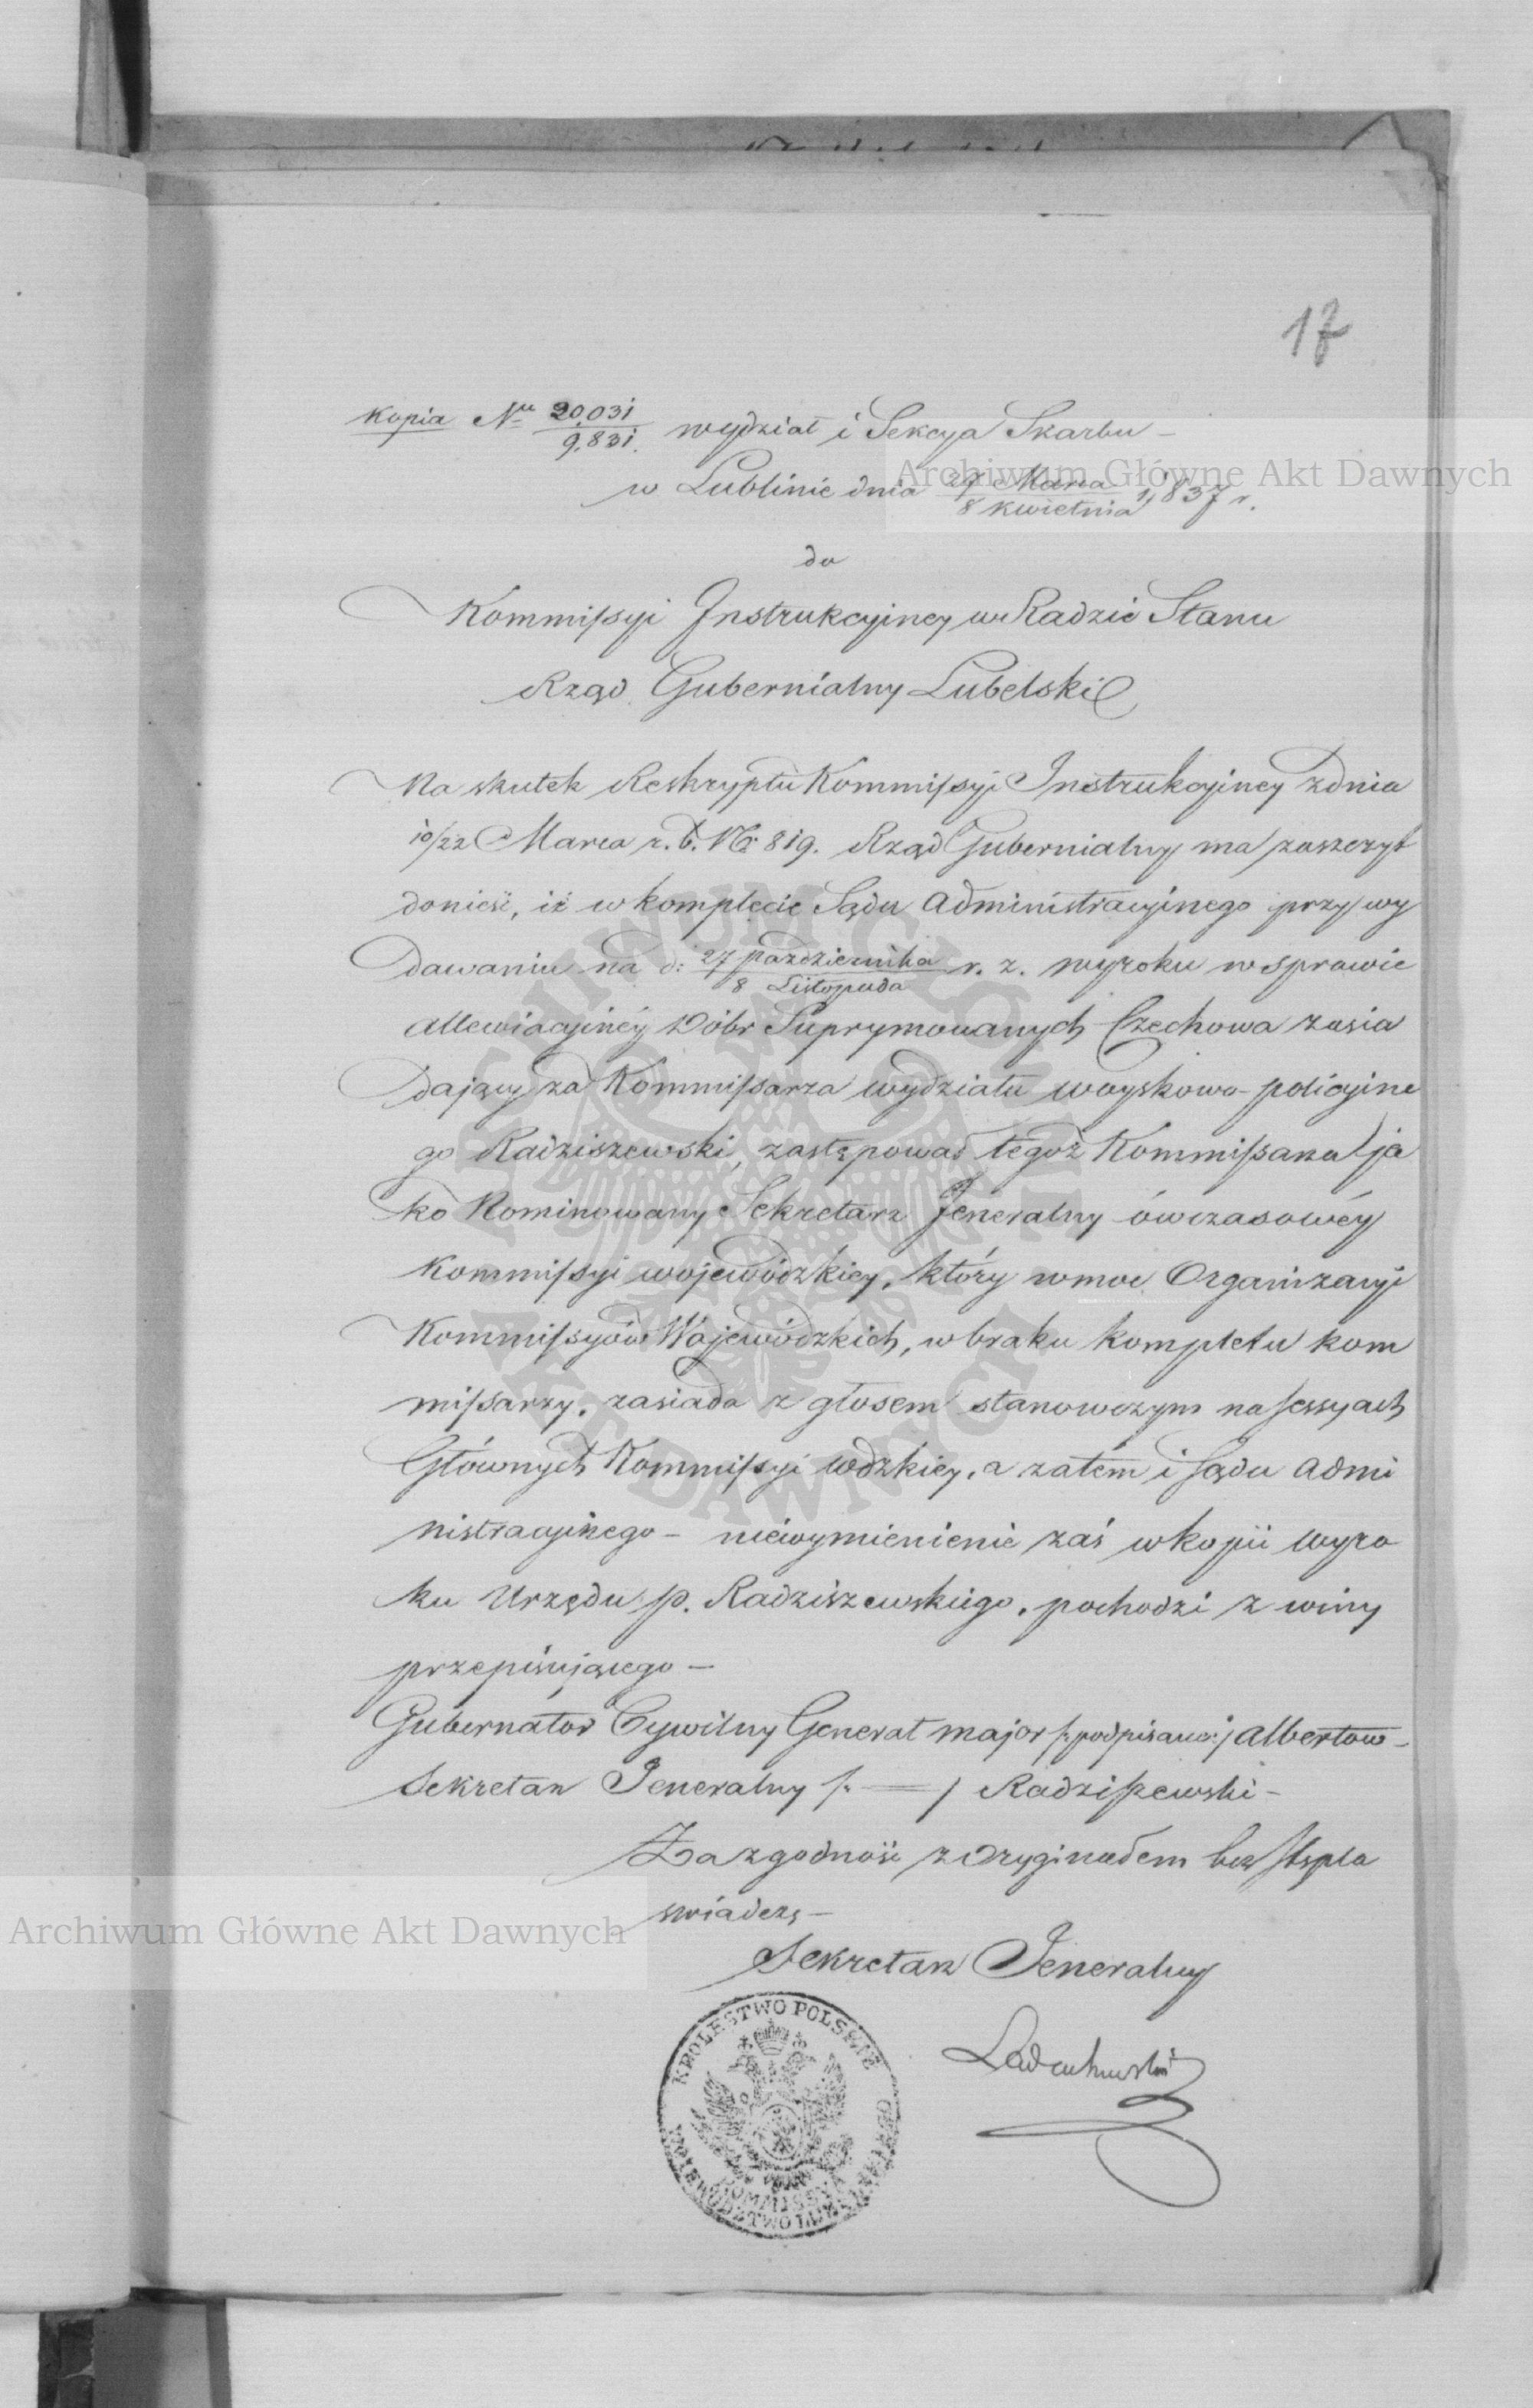 17
Kopia Nru 20,031/9,831. wydział i Sekcya Skarbu –
w Lublinie dnia 27 Marca/8 kwietnia 1,837 r.
do
Kommissyi Instrukcyiney w Radzie Stanu
Rząd Gubernialny Lubelski
Na skutek Reskryptu Kommissyi Instrukcyiney z dnia
10/22 Marca r. b. No 819. Rząd Gubernialny ma zaszczyt
donieść, iż w komplecie Sądu Administracyinego przy wy
dawaniu na d: 27 października/8 Listopada r. z. wyroku w sprawie
allewiacyiney Dóbr Suprymowanych Czechowa zasia
dający za Kommissarza wydziału woyskowo-policyine
go Radziszewski, zastępował tegoż Kommissarza ja
ko Nominowany Sekretarz Jeneralny ówczasowéy
Kommissyi wojewódzkiey, który w moc Organizacyi
Kommissyów Wojewódzkich, w braku kompletu kom
missarzy, zasiada z głosem stanowczym na sessyach
Głównych Kommissyi wdzkiey, a zatém i Sądu Admi
nistracyinego – niewymienienie zaś w kopii wyro
ku Urzędu p. Radziszewskiego, pochodzi z winy
przepisującego –
Gubernator Cywilny Generał major /: podpisano :/ Albertow –
Sekretarz Jeneralny /: = / Radziszewski –
Za zgodność z Oryginałem bez Stępla
świadczę –
Sekretarz Jeneralny
KRÓLESTWO POLSKIE
WOIEWÓDZTWO LUBELSKIE
KOMMISSYA
Archiwum Główne Akt Dawnych
Archiwum Główne Akt Dawnych
ARCHIWUM GŁÓWNE AKT DAWNYCH